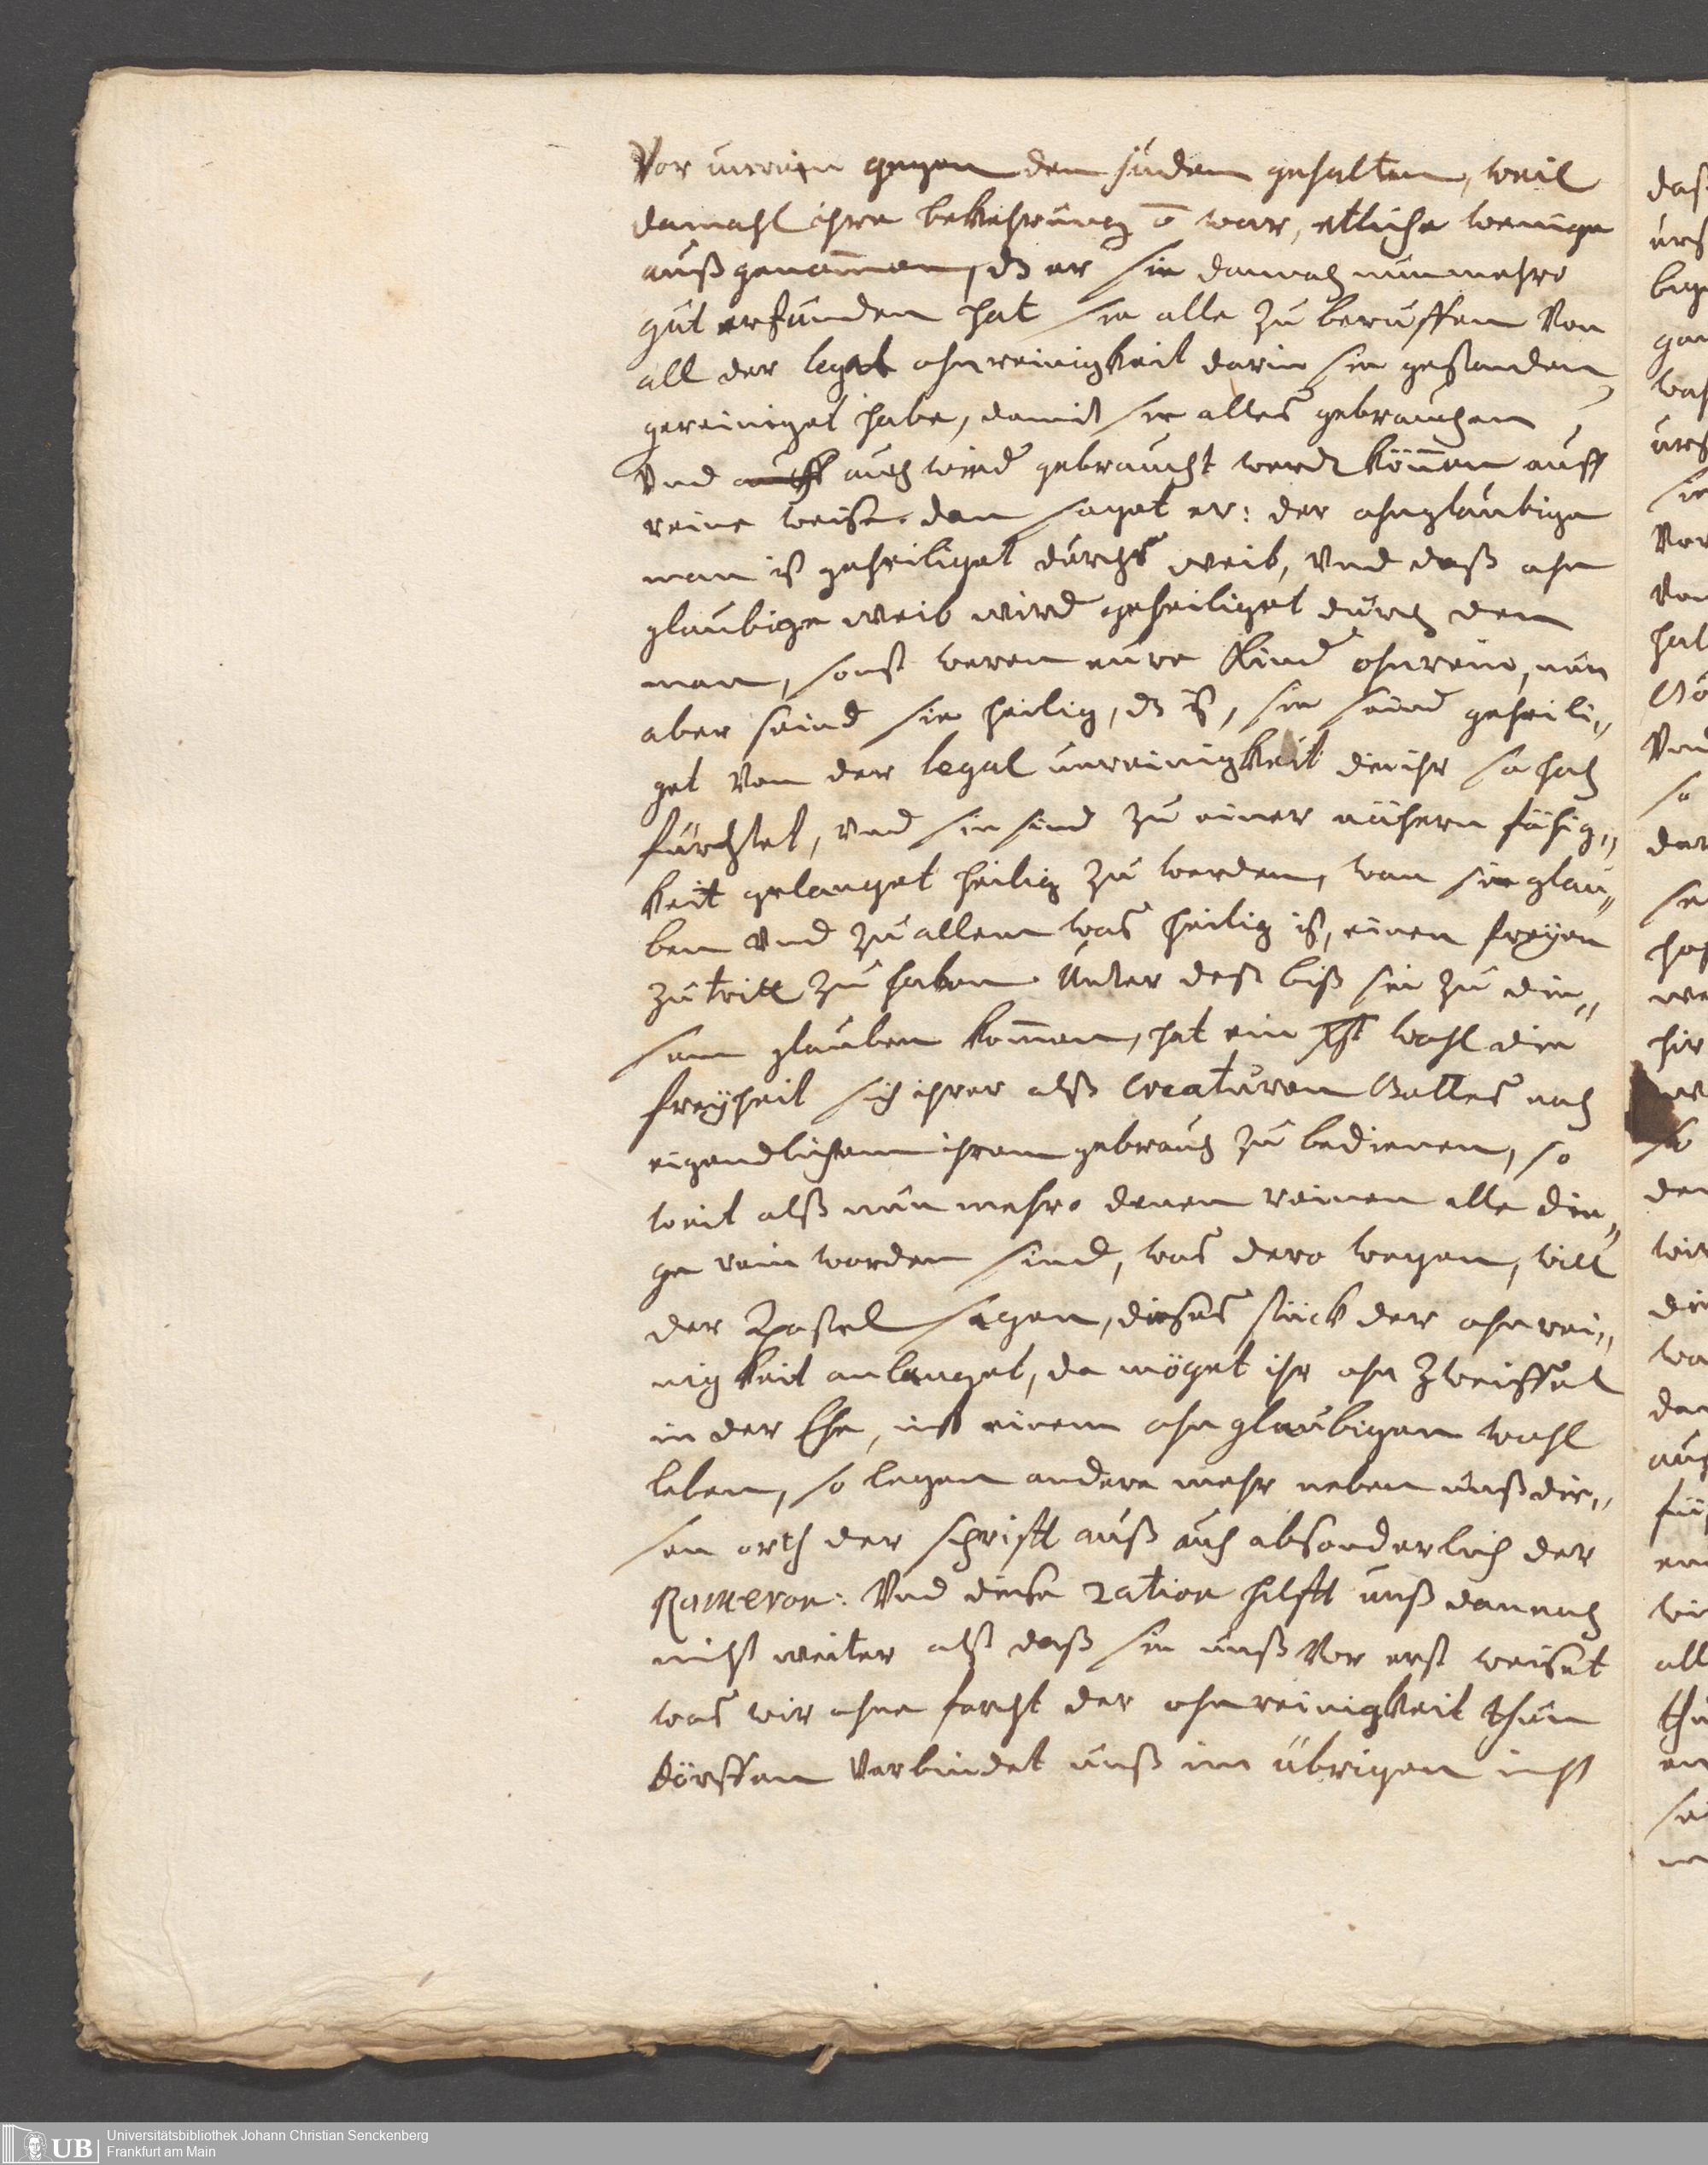 Vor unrein gegen den juden gehalten, weil
damahl ihre bekehrung ō war, etliche wenige
außgenom̄en, dz er sie danach nunmehro
gut erfunden hat sie alle zu beruffen Von
all der legal ohnreinigkeit darin sie gestanden
gereiniget habe, damit sie alles gebrauchen
Vnd auff auch wied gebraucht werd kön̄en auff
reine weise. dan saget er: der ohnglaubige
man ist geheiliget durchs weib, Vnd daß ohn
glaubige weib wird geheiliget durch den
man, sonst weren eure Kind ohnrein, nun
aber seind sie heilig, dz ist, sie seind geheili„
get Von der legal unreinigkeit die ihr so hoch
fürchtet, Vnd sie sind zu einer nähern fähig„
keit gelanget heilig zu werden, wan sie glau„
ben Vnd zu allem was heilig ist, einen freyen
zutritt zu haben. Unter deß biß sie zu die„
sem glauben kom̄en, hat ein Xst wohl die
freyheit sich ihrer alß Creaturen Gottes nach
eigendlichem ihrem gebrauch zu bedienen, so
weit alß nun mehro denen reinen alle din„
ge rein worden sind, was dero wegen, will
der Apostel sagen, dieses stück der ohnrei„
nigkeit anlanget, da möget ihr ohn Zweiffel
in der Ehe, mit einem ohnglaubigen wohl
leben, so legen andere mehr neben unß die„
sen orth der schrifft auß auch absonderlich der
Kameron: Vnd diese ration hilfft unß dannoch
nicht weiter alß daß sie unß Vor erst weiset
was wir ohne forcht der ohnreinigkeit thun
dörffen Verbindet unß im übrigen nicht
Universitätsbibliothek Johann Christian Senckenberg
Frankfurt am Main
UB